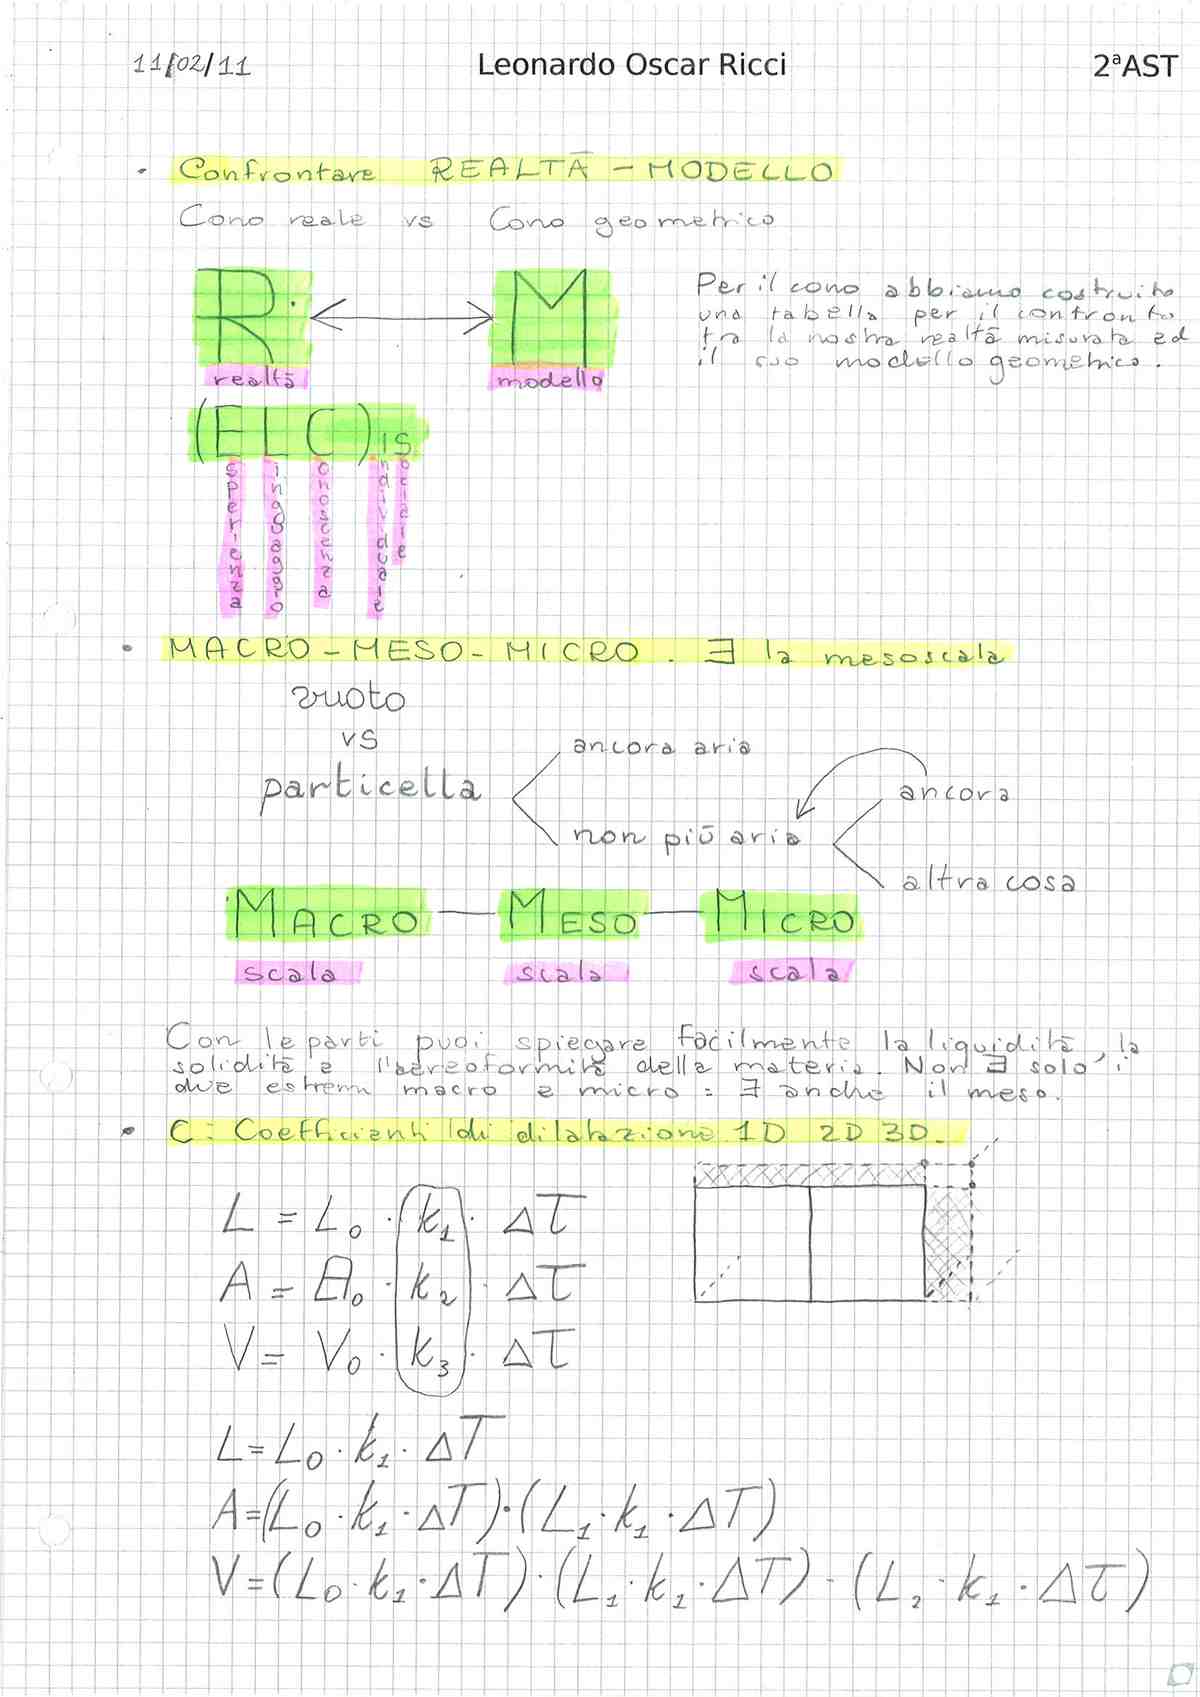 11/02/11 Leonardo Oscar Ricci 2ªAST
• Confrontare REALTÀ - MODELLO
Cono reale vs Cono geometrico
R ⟷ M
realtà modello
Per il cono abbiamo costruito
una tabella per il confronto
tra la nostra realtà misurata ed
il suo modello geometrico.
(ELC)IS
sperienza inguaggio onoscenza ndividuale ociale
• MACRO-MESO-MICRO. ∃ la mesoscala
vuoto
vs
particella
ancora aria
non più aria
ancora
altra cosa
MACRO — MESO — MICRO
scala scala scala
Con le parti puoi spiegare facilmente la liquidità, la
solidità e l'aereoformità della materia. Non ∃ solo i
due estremi macro e micro: ∃ anche il meso.
• C: Coefficienti di dilatazione 1D 2D 3D.
L = L₀ · k₁ · ΔT
A = A₀ · k₂ · ΔT
V = V₀ · k₃ · ΔT
L = L₀ · k₁ · ΔT
A = (L₀ · k₁ · ΔT) · (L₁ · k₁ · ΔT)
V = (L₀ · k₁ · ΔT) · (L₁ · k₁ · ΔT) · (L₂ · k₁ · ΔT)